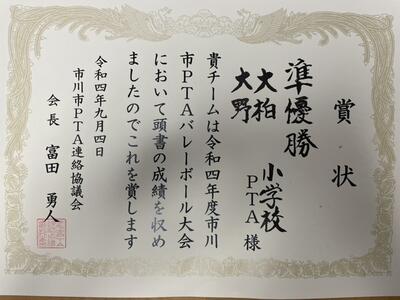 賞状
準優勝
大柏
大野
小学校
PTA
様
貴チームは令和四年度市川
市PTAバレーボール大会
において頭書の成績を収め
ましたのでこれを賞します
令和四年九月四日
市川市PTA連絡協議会
会長 富田 勇人